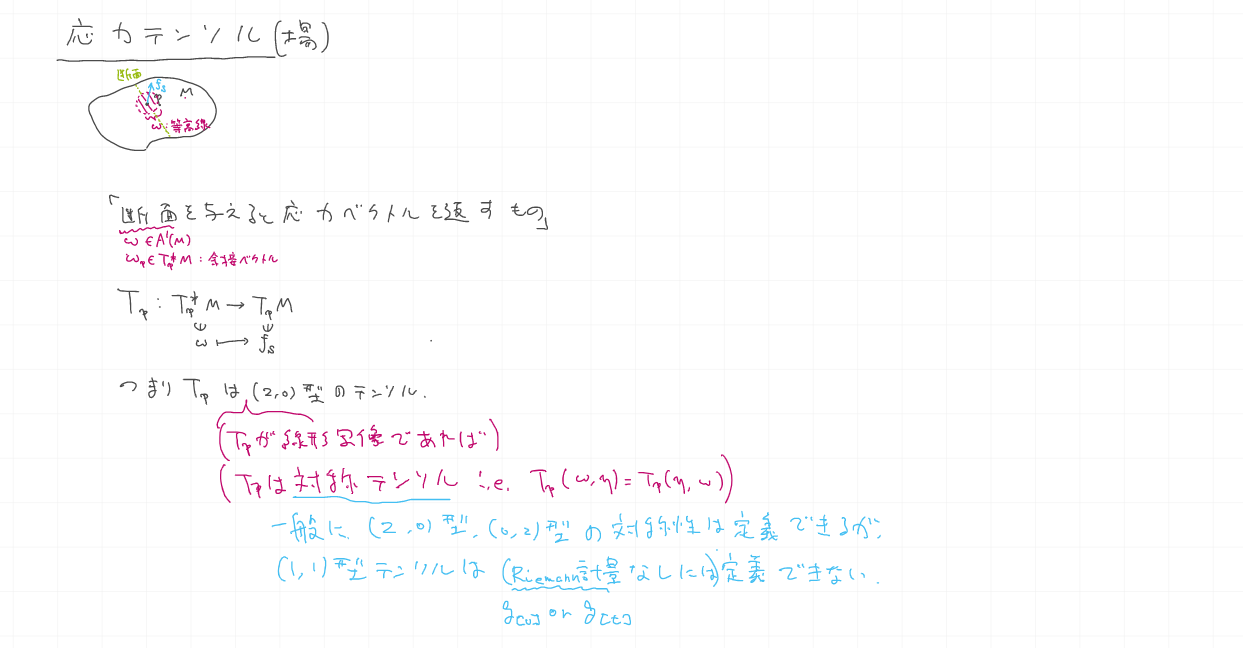 応力テンソル(場)
断面
f_s
p
M
ω:等高線
「断面を与えると応力ベクトルを返すもの」
ω ∈ A¹(M)
ω_p ∈ T_p*M : 余接ベクトル
T_p : T_p*M → T_pM
ω ↦ f_s
つまり T_p は (2,0)型のテンソル.
(T_pが線形写像であれば)
(T_pは対称テンソル i.e. T_p(ω,η)=T_p(η,ω))
一般に、(2,0)型、(0,2)型の対称性は定義できるが、
(1,1)型テンソルは(Riemann計量なしには)定義できない.
g[0] or g[t]